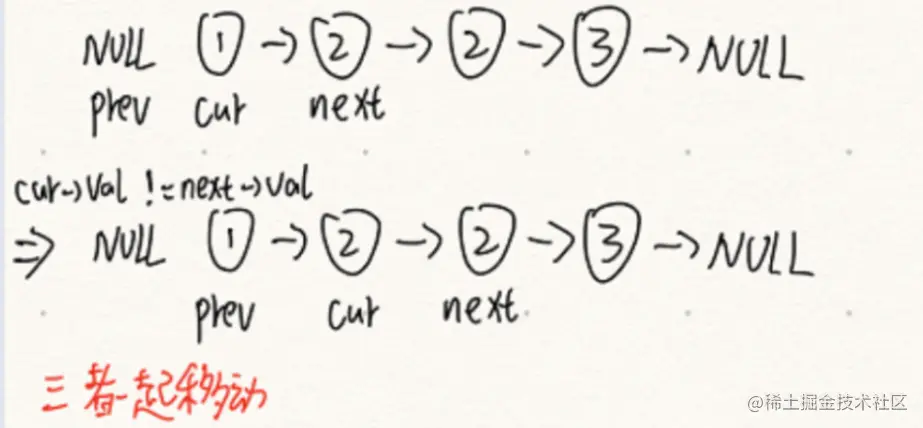 NULL ① → ② → ② → ③ → NULL
prev cur next
cur→val != next→val
⇒ NULL ① → ② → ② → ③ → NULL
prev cur next
三者一起移动
@稀土掘金技术社区